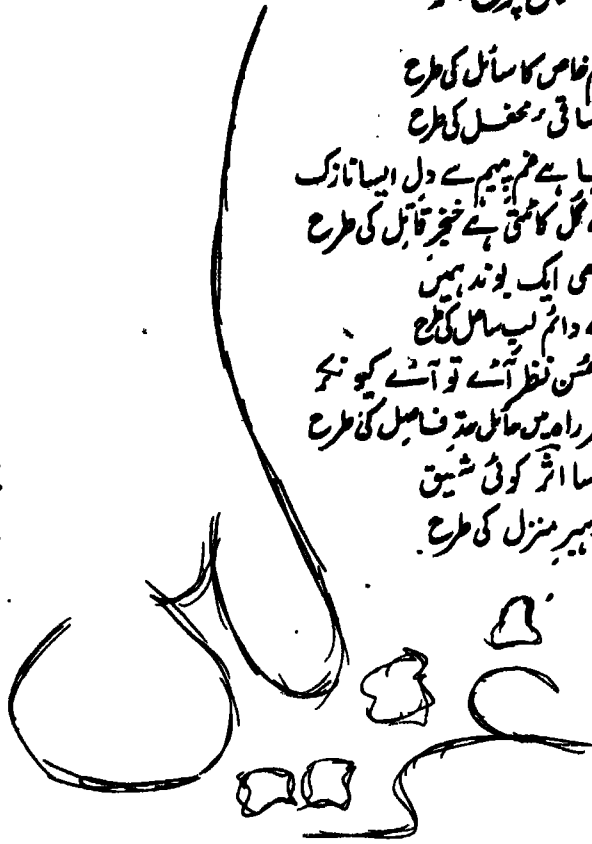 خاص کا سائل کی طرح
ساقیٔ محفل کی طرح
ہے غم پیہم سے دل ایسا نازک
گل کاٹتی ہے خنجرِ قاتل کی طرح
ایک بوند ہمیں
دائم لبِ ساحل کی طرح
حُسن نظر آئے تو آئے کیونکر
راہ میں حائل حدِ فاصل کی طرح
اثر کوئی شفیق
منزل کی طرح